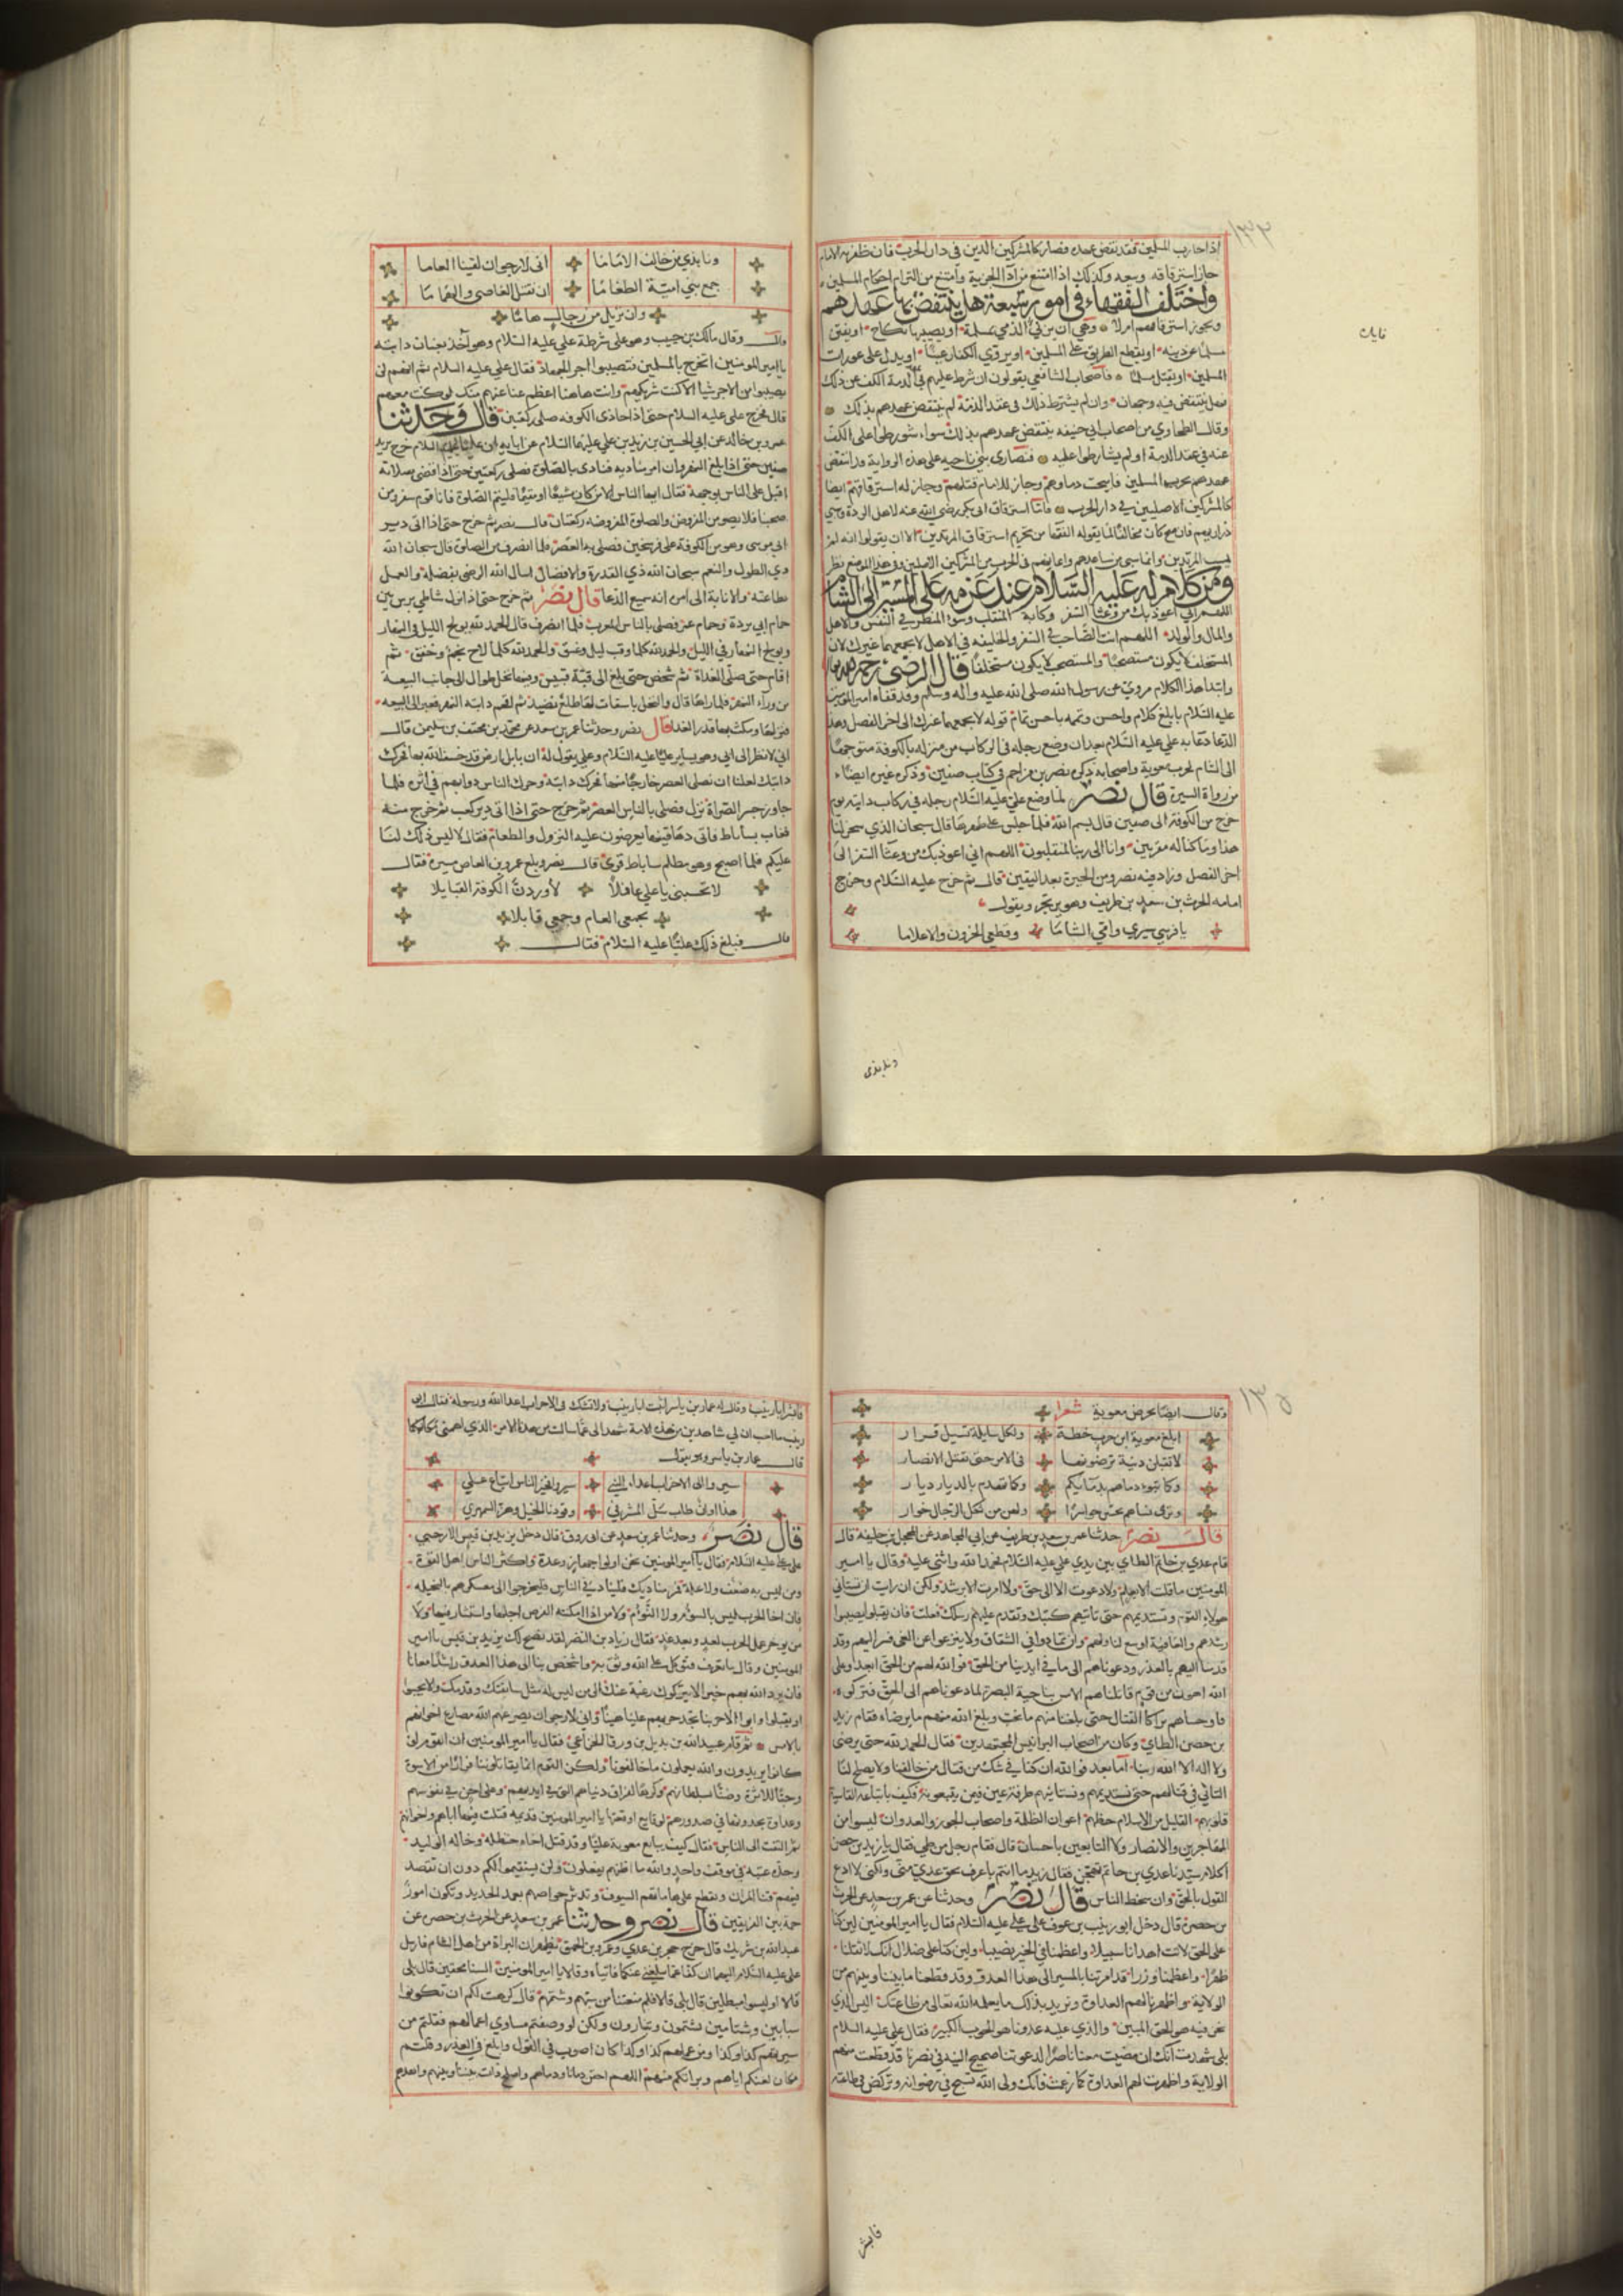 ١٣٣
اذا حارب المسلمين فقد نقض عهده فصار كالمشركين الذين في دار الحرب فان ظفر به الامام
جاز استرقاقه وبيعه وكذلك اذا امتنع من ادآ الجزية وامتنع من التزام احكام المسلمين
واختلف الفقهاء في امور سبعة هل ينتقض بها عهدهم
ويجوز استرقاقهم ام لا وهي ان يزني الذمي بمسلمة او يصيبها بنكاح او يفتن
مسلما عن دينه او يقطع الطريق على المسلمين او يروي الكفار عينا او يدل على عورات
المسلمين او يقتل مسلما فاصحاب الشافعي يقولون ان شرط عليهم في الذمة الكف عن ذلك
فهل ينتقض فيه وجهان وان لم يشترط ذلك في عقد الذمة لم ينتقض عهدهم بذلك
وقال الطحاوي من اصحاب ابي حنيفه ينتقض عهدهم بذلك سواء شورطوا على الكف
عنه في عقد الذمة او لم يشارطوا عليه فنصارى بني ناجيه على هذه الرواية قد انتقض
عهدهم بحربهم المسلمين فابيحت دماوهم وجاز للامام قتلهم وجاز له استرقاقهم ايضا
كالمشركين الاصليين في دار الحرب فاما استرقاق ابي بكر رضي الله عنه لاهل الردة وسبي
ذراريهم فان صح كان مخالفا لما يقوله الفقها من تحريم استرقاق المرتدين الا ان يقولوا انه لم
يسب المرتدين وانما سبي من ساعدهم واعانهم في الحرب من المشركين الاصليين وفي هذا الموضع نظر
ومن كلام له عليه السلام عند عزمه على المسير الى الشام
اللهم اني اعوذ بك من وعثا السفر وكابة المنقلب وسوء المنظر في النفس والاهل
والمال والولد اللهم انت الصاحب في السفر والخليفه في الاهل لا يجمعهما غيرك لان
المستخلف لا يكون مستصحبا والمستصحب لا يكون مستخلفا قال الرضي رحمه الله
وابتدا هذا الكلام مروي عن رسول الله صلى الله عليه واله وسلم وقد قفاه امير المومنين
عليه السلام بابلغ كلام واحسن وتممه باحسن تمام قوله لا يجمعهما غيرك الى اخر الفصل وهذا
الدعا دعا به علي عليه السلام بعد ان وضع رجله في الركاب من منزله بالكوفة متوجها
الى الشام لحرب معوية واصحابه ذكره نصر بن مزاحم في كتاب صفين وذكره غيره ايضاء
من رواة السيرة قال نصر لما وضع علي عليه السلام رجله في ركاب دابته يوم
خرج من الكوفة الى صفين قال بسم الله فلما جلس على ظهرها قال سبحان الذي سخر لنا
هذا وما كنا له مقرنين وانا الى ربنا لمنقلبون اللهم اني اعوذ بك من وعثا السفر الى
اخر الفصل وزاد فيه نصر ومن الحيرة بعد اليقين قال ثم خرج عليه السلام وخرج
امامه الحرث بن سعيد بن طريف وهو يرتجز ويقول
يا فرسي سيري وامي الشاما وقطعي الحزون والاعلاما
ونابذي
ونابذي من خالف الاماما اني لارجو ان لقينا العاما
جمع بني امية الطغاما ان نقتل العاصي والهماما
وان نزيل من رجال هاما
قال وقال مالك بن حبيب وهو على شرطة علي عليه السلام وهو آخذ بعنان دابته
يا امير المومنين اتخرج بالمسلمين فتصيبوا اجر الجهاد فقال علي عليه السلام ثم انهم لن
يصيبوا من الاجر شيا الا كنت شريكهم وانت هاهنا اعظم عنا عنهم منك لو كنت معهم
قال فخرج علي عليه السلام حتى اذا حاذى الكوفه صلى ركعتين قال وحدثنا
عمرو بن خالد عن ابي الحسين بن زيد بن علي عليهما السلام عن ابايه ان عليا عليه السلام خرج يريد
صفين حتى اذا بلغ النهروان امر مناديه فنادى بالصلوة فصلى ركعتين حتى اذا قضى صلاته
اقبل على الناس بوجهه فقال ايها الناس الا من كان مشيعا او مقيما فليتم الصلوة فانا قوم سفر ومن
صحبنا فلا يصومن المفروض والصلوة المفروضه ركعتان قال نصر ثم خرج حتى اذا اتى دير
ابي موسى وهو من الكوفة على فرسخين فصلى به العصر فلما انصرف من الصلوة قال سبحان الله
ذي الطول والنعم سبحان الله ذي القدرة والافضال اسال الله الرضى بفضله والعمل
بطاعته والانابة الى امره انه سميع الدعا قال نصر ثم خرج حتى اذا نزل شاطي نرس بين
حمام ابي بردة وحمام عمر فصلى بالناس المغرب فلما انصرف قال الحمد لله يولج الليل في النهار
ويولج النهار في الليل والحمد لله كلما وقب ليل وغسق والحمد لله كلما لاح نجم وخفق ثم
اقام حتى صلى الغداة ثم شخص حتى بلغ الى قبة قبين وبينها نخل طوال الى جانب البيعة
من ورآء النهر فلما راها قال والنخل باسقات لها طلع نضيد ثم اقحم دابته النهر فعبر الى البيعه
فنزلها ومكث بها قدر الغدا قال نصر وحدثنا عمر بن سعد عن محمد بن مخنف بن سليمن قال
اني لانظر الى ابي وهو يساير عليا عليه السلام وعلي يقول له ان بابل ارض قد خسف الله بها فحرك
دابتك لعلنا ان نصلي العصر خارجا منها فحرك دابته وحرك الناس دوابهم في اثره فلما
جاوز جسر الصراة نزل فصلى بالناس العصر ثم خرج حتى اذا اتى دير كعب ثم خرج منه
فبات بساباط فاتى دهاقينها يعرضون عليه النزول والطعام فقال لا ليس ذلك لنا
عليكم فلما اصبح وهو بمظلم ساباط قرى قال نصر وبلغ عمرو بن العاص مسيره فقال
لا تحسبني يا علي غافلا لاوردن الكوفة القبايلا
بجمعي العام وجمعي قابلا
قال فبلغ ذلك عليا عليه السلام فقال
وقال ايضا يحرض معوية شعرا
ابلغ معوية ابن حرب خطة ولكل سايلة تسيل قرار
لا تقبلن دنية ترضونها في الامر حتى تقتل الانصار
وكما تبوء دماهم بدمايكم وكما تهدم بالديار ديار
وترى نساهم يجلن حواسرا ولهن من ثكل الرجال خوار
قال نصر حدثنا عمر بن سعد بن طريف عن ابي المجاهد عن المحل بن خليفة قال
قام عدي بن حاتم الطاي بين يدي علي عليه السلام فحمد الله واثنى عليه وقال يا امير
المومنين ما قلت الا بعلم ولا دعوت الا الى حق ولا امرت الا برشد ولكن ان رايت ان تستاني
هولاء القوم وتستديمهم حتى تاتيهم كتبك وتقدم عليهم رسلك فعلت فان يقبلوا يصيبوا
رشدهم والعافية اوسع لنا ولهم وان يتمادوا في الشقاق ولا ينزعوا عن الغي فسر اليهم وقد
قدمنا اليهم بالعذر ودعوناهم الى ما في ايدينا من الحق فوالله لهم من الحق ابعد وعلى
الله اهون من قوم قاتلناهم الامس بناحية البصرة لما دعوناهم الى الحق فتركوه
فاوجلناهم براكا القتال حتى بلغنا منهم ما نحب وبلغ الله منهم ما يرضاه فقام زيد
بن حصن الطاي وكان من اصحاب البرانيس المجتهدين فقال الحمد لله حتى يرضى
ولا اله الا الله ربنا اما بعد فوالله ان كنا في شك من قتال من خالفنا ولا يصلح لنا
التاني في قتالهم حتى نستديمهم ونستانيهم طرفة عين فيمن يتبعونه فكيف باتباعه القاسية
قلوبهم القليل من الاسلام حظهم اعوان الظلمة واصحاب الجور والعدوان ليسوا من
المهاجرين والانصار ولا التابعين باحسان قال فقام رجل من طي فقال يا زيد بن حصن
اكلام سيدنا عدي بن حاتم تهجن فقال زيد ما انتم باعرف بحق عدي مني ولكني لا ادع
القول بالحق وان سخط الناس قال نصر وحدثنا عن عمر بن سعد عن الحرث
بن حصين قال دخل ابو زينب بن عوف على علي عليه السلام فقال يا امير المومنين لين كنا
على الحق لانت اهدانا سبيلا واعظمنا في الخير نصيبا ولين كنا على ضلال انك لاثقلنا
ظهرا واعظمنا وزرا قد امرتنا بالمسير الى هذا العدو وقد قطعنا ما بيننا وبينهم من
الولاية واظهرنا لهم العداوة ونريد بذلك ما يعلمه الله تعالى من طاعتك اليس الذي
نحن فيه هو الحق المبين والذي عليه عدونا هو الحوب الكبير فقال علي عليه السلام
بلى شهدت انك ان مضيت معنا ناصرا لدعوتنا صحيح النية في نصرنا قد قطعت منهم
الولاية واظهرت لهم العداوة كما زعمت فانك ولي الله تسبح في رضوانه وتركض في طاعته
فابشر
فابشر ابا زينب وقال له عمار بن ياسر اثبت ابا زينب ولا تشك في الاحزاب اعدا الله ورسوله فقال ابو
زينب ما احب ان لي شاهدين من هذه الامة شهدا لي عما سالت من هذا الامر الذي اهمني مكانكما
قال عمار بن ياسر وهو يقول
سيروا الى الاحزاب اعداء النبي سيروا فخير الناس اتباع علي
هذا اوان طاب سل المشرفي وقودنا الخيل وهز السمهري
قال نصر وحدثنا عمر بن سعد عن ابي روق قال دخل يزيد بن قيس الارحبي
على علي عليه السلام فقال يا امير المومنين نحن اولوا جهاز وعدة واكثر الناس اهل القوة
ومن ليس به ضعف ولا علة فمر مناديك فليناد في الناس فليخرجوا الى معسكرهم بالنخيله
فان اخا الحرب ليس بالسؤوم ولا النوام ولا من اذا امكنته الفرص اجلها واستشار فيها ولا
من يوخر عمل الحرب لغد وبعد غد فقال زياد بن النضر لقد نصح لك يزيد بن قيس يا امير
المومنين وقال ما يعرف فتوكل على الله وثق به واشخص بنا الى هذا العدو راشدا معانا
فان يرد الله بهم خيرا لا يتركوك رغبة عنك الى من ليس له مثل سابقتك وقدمك ولا يجيبوا
او يقبلوا وابوا الا حربنا نجد حربهم علينا هينا وانى لارجو ان يصرعهم الله مصارع اخوانهم
بالامس ثم قام عبيد الله بن بديل بن ورقا الخزاعي فقال يا امير المومنين ان القوم لو
كانوا يريدون والله يعملون ما خالفونا ولكن القوم انما يقاتلوننا فرارا من الاسوة
وحبا للاثرة وضنا بسلطانهم وكرها لفراق دنياهم التي في ايديهم وعلى احن في نفوسهم
وعداوة يجدونها في صدورهم لوقايع اوقعتها يا امير المومنين قديمه قتلت فيها اباهم واخوانهم
ثم التفت الى الناس فقال كيف يبايع معوية عليا وقد قتل اخاه حنظله وخاله الوليد
وجده عتبه في موقف واحد والله ما اظنهم يفعلون ولن يستقيموا لكم دون ان تقصد
فيهم قنا المران وتقطع على هاماتهم السيوف وتنثر حواجبهم بعمد الحديد وتكون امور
جمة بين الفريقين قال نصر وحدثنا عمر بن سعد عن الحرث بن حصين عن
عبد الله بن شريك قال خرج حجر بن عدي وعمرو بن الحمق يظهران البراة من اهل الشام فارسل
علي عليه السلام اليهما ان كفا عما يبلغني عنكما فاتياه وقالا يا امير المومنين السنا محقين قال بلى
قالا اوليسوا مبطلين قال بلى قالا فلم منعتنا من سبهم وشتمهم قال كرهت لكم ان تكونوا
سبابين وشتامين تشتمون وتبارون ولكن لو وصفتم مساوي اعمالهم فقلتم من
سيرتهم كذا وكذا ومن عملهم كذا وكذا كان اصوب في القول وابلغ في العذر وقلتم
مكان لعنكم اياهم وبراتكم منهم اللهم احقن دمانا ودماهم واصلح ذات بيننا وبينهم واهدهم